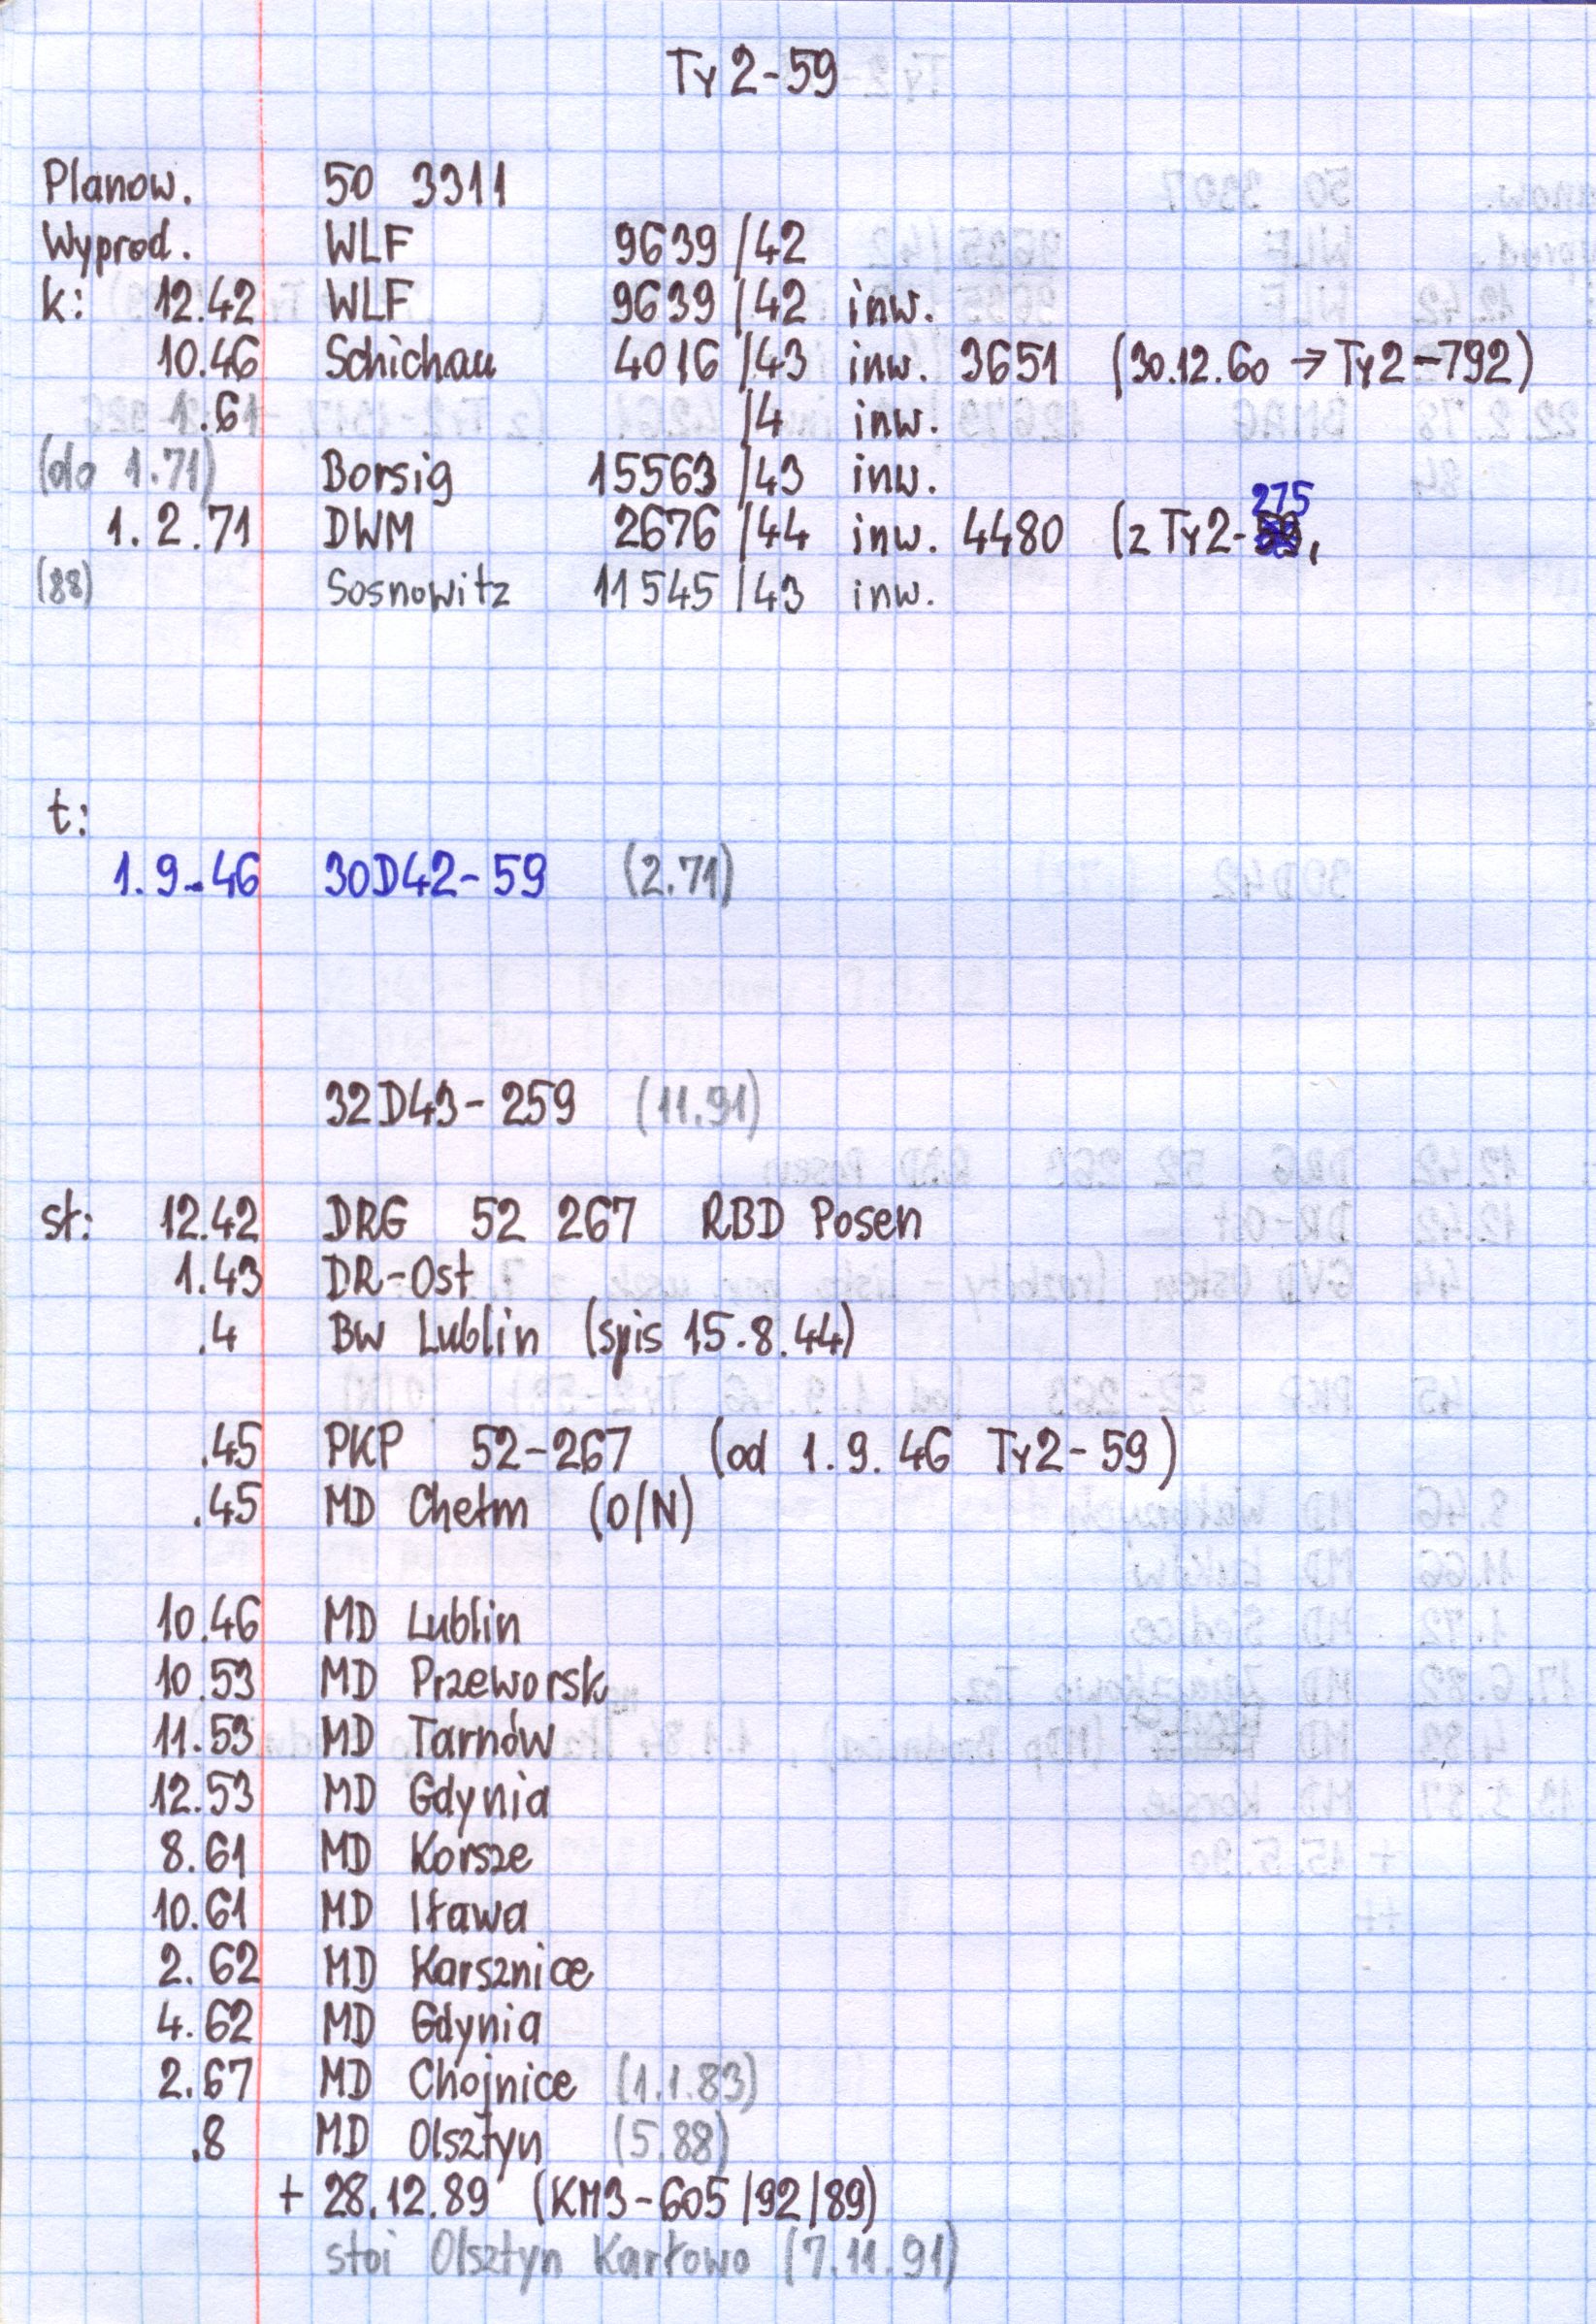 Ty2-59
Planow. 50 3311
Wyprod. WLF 9639/42
k: 12.42 WLF 9639/42 inw.
10.46 Schichau 4016/43 inw. 3651 (30.12.60 → Ty2-792)
1.61 /4 inw.
(do 1.71) Borsig 15563/43 inw.
275
1.2.71 DWM 2676/44 inw. 4480 (z Ty2-59,
(88) Sosnowitz 11545/43 inw.
t:
1.9.46 30D42-59 (2.71)
32D43-259 (11.91)
st: 12.42 DRG 52 267 RBD Posen
1.43 DR-Ost
.4 BW Lublin (spis 15.8.44)
.45 PKP 52-267 (od 1.9.46 Ty2-59)
.45 MD Chełm (O/N)
10.46 MD Lublin
10.53 MD Przeworsk
11.53 MD Tarnów
12.53 MD Gdynia
8.61 MD Korsze
10.61 MD Iława
2.62 MD Karsznice
4.62 MD Gdynia
2.67 MD Chojnice (1.1.83)
.8 MD Olsztyn (5.88)
+ 28.12.89 (KM3-605/92/89)
stoi Olsztyn Karłowo (7.11.91)